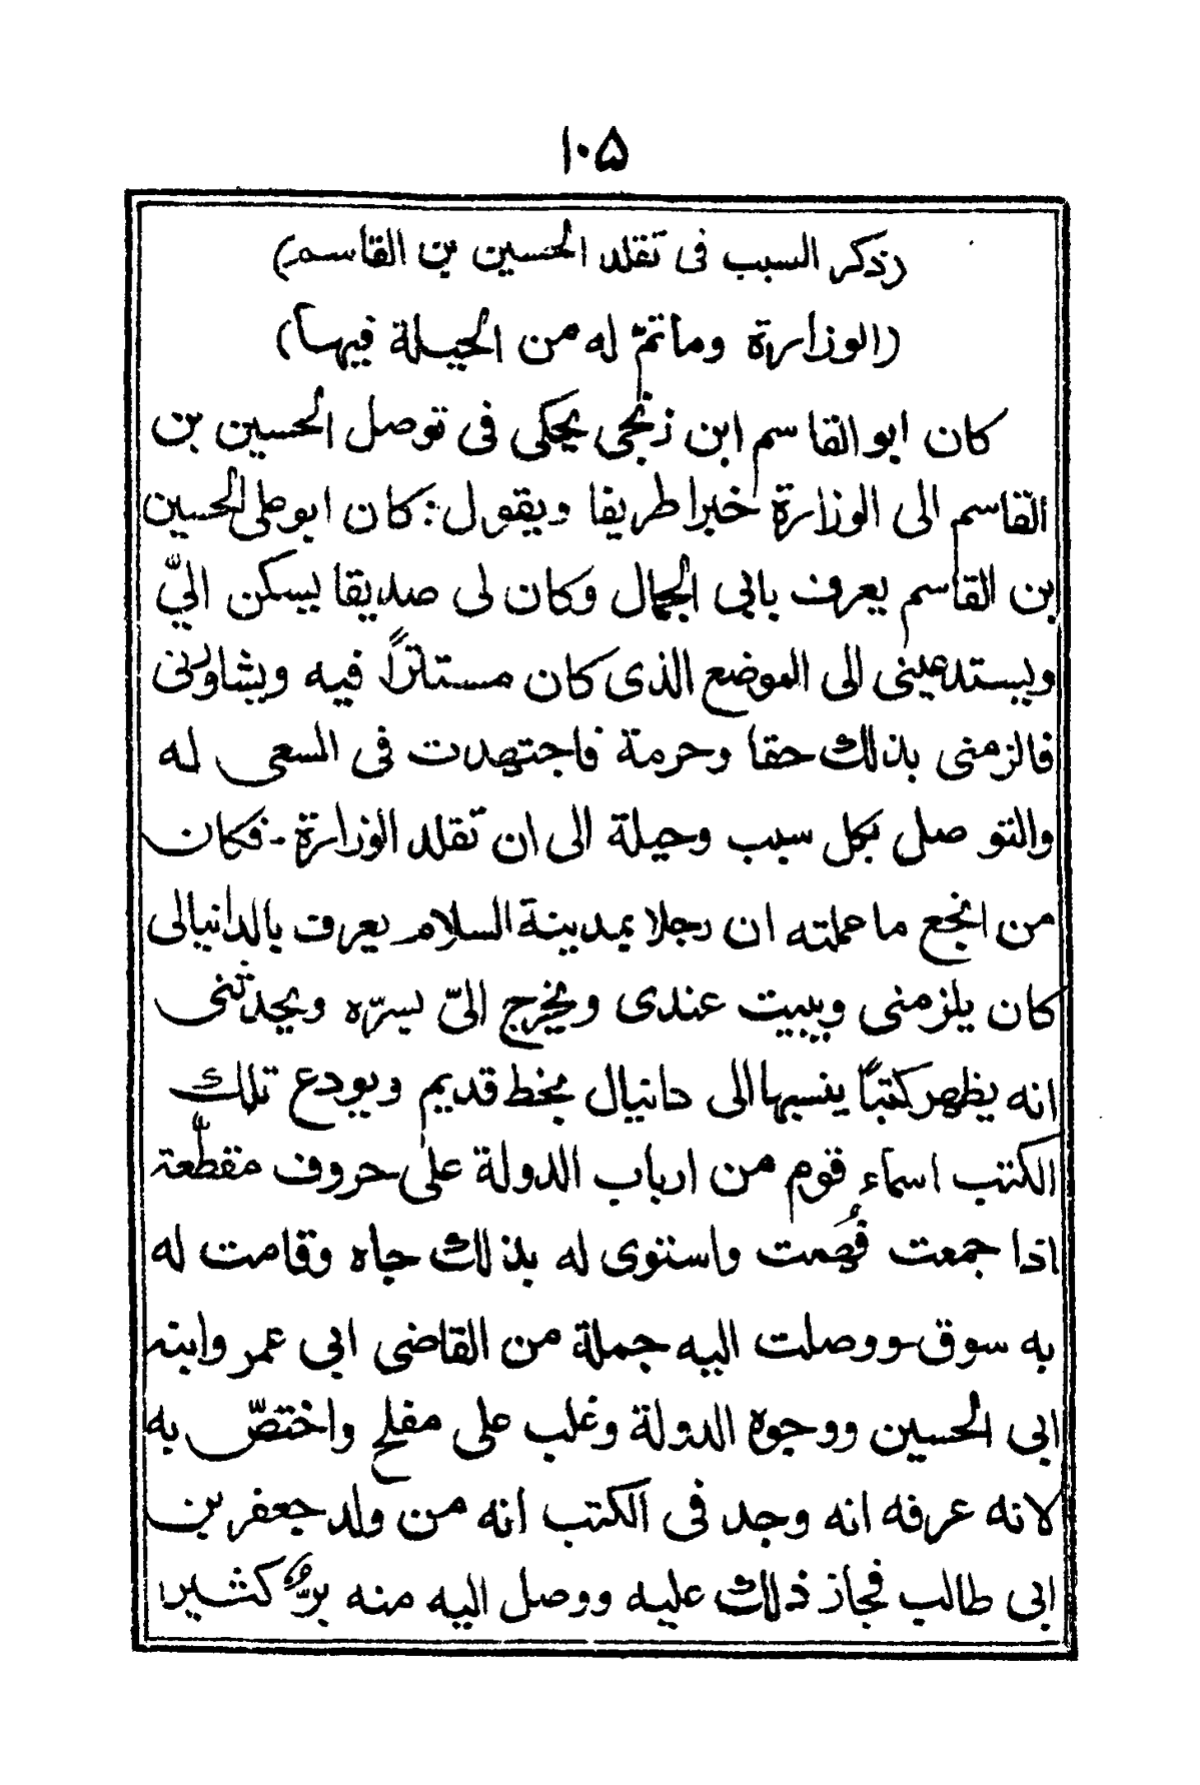 ١٠٥
(ذكر السبب فى تقلد الحسين بن القاسم)
(الوزارة وما تمّ له من الحيلة فيها)
كان ابو القاسم ابن زنجى يحكى فى توصل الحسين بن
القاسم الى الوزارة خبرا طريفا ويقول: كان ابو على الحسين
بن القاسم يعرف بابى الجمال وكان لى صديقا يسكن الىّ
ويستدعينى الى الموضع الذى كان مستترًا فيه ويشاورنى
فالزمنى بذلك حقا وحرمة فاجتهدت فى السعى له
والتوصل بكل سبب وحيلة الى ان تقلد الوزارة - فكان
من انجع ما عملته ان رجلا بمدينة السلام يعرف بالدانيالى
كان يلزمنى ويبيت عندى ويخرج الىّ بسرّه ويحدثنى
انه يظهر كتبًا ينسبها الى دانيال بخط قديم ويودع تلك
الكتب اسماء قوم من ارباب الدولة على حروف مقطّعة
اذا جمعت فُهمت واستوى له بذلك جاه وقامت له
به سوق - ووصلت اليه جملة من القاضى ابى عمر وابنه
ابى الحسين ووجوه الدولة وغلب على مفلح واختصّ به
لانه عرفه انه وجد فى الكتب انه من ولد جعفر بن
ابى طالب فجاز ذلك عليه ووصل اليه منه برٌّ كثير